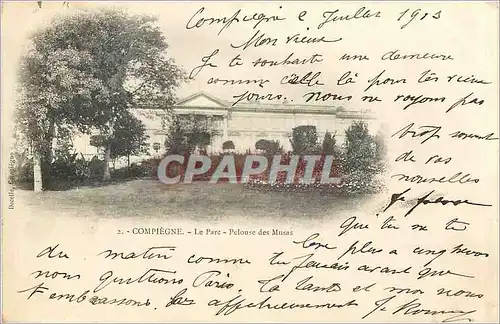 Compiègne 2 Juillet 1903
Mon vieux
Je te souhaite une demeure
comme celle là pour tes vieux
jours. nous ne voyons pas
trop souvent
de vos
nouvelles
Je pense
Que tu ne te
lève plus a cinq heures
du matin comme tu faisais avant que
nous quittions Paris. la tante et moi nous
t'embrassons bien affectueusement
2. - COMPIÈGNE. - Le Parc - Pelouse des Musas
CPARAMA.COM